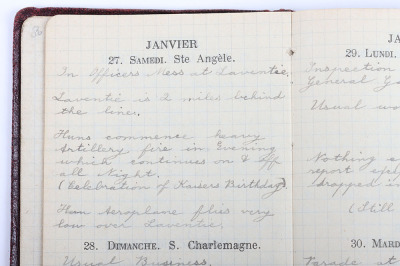 JANVIER
27. SAMEDI. Ste Angèle.
In Officers Mess at Laventie.
Laventie is 2 miles behind
the line.
Huns commence heavy
Artillery fire in Evening
which continues on & off
all Night.
(Celebration of Kaisers Birthday).
Hun Aeroplane flies very
low over Laventie.
28. DIMANCHE. S. Charlemagne.
Usual Business.
JA
29. LUNDI.
Inspection
General
Usual
Nothing
report
dropped in
(Still
30. MARD
Parade at